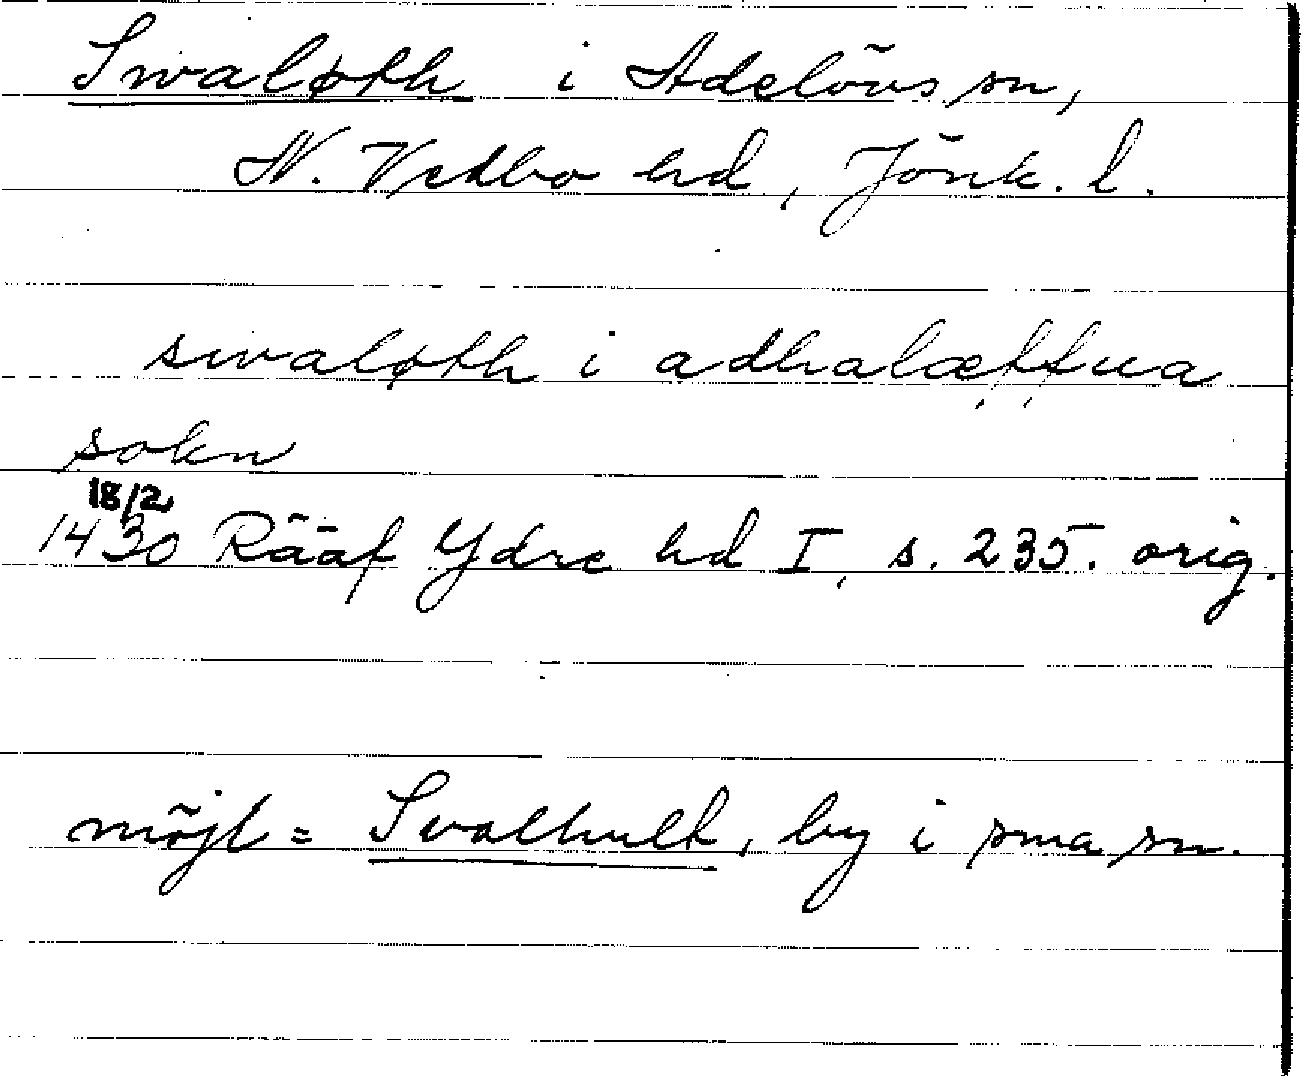 Swaløth i Adelövs sn,
N. Vedbo hd, Jönk. l.
swaløth i adhalæffua
sokn
18/2
1430 Rääf Ydre hd I, s. 235. orig.
möjl = Svalhult, by i sma sn.